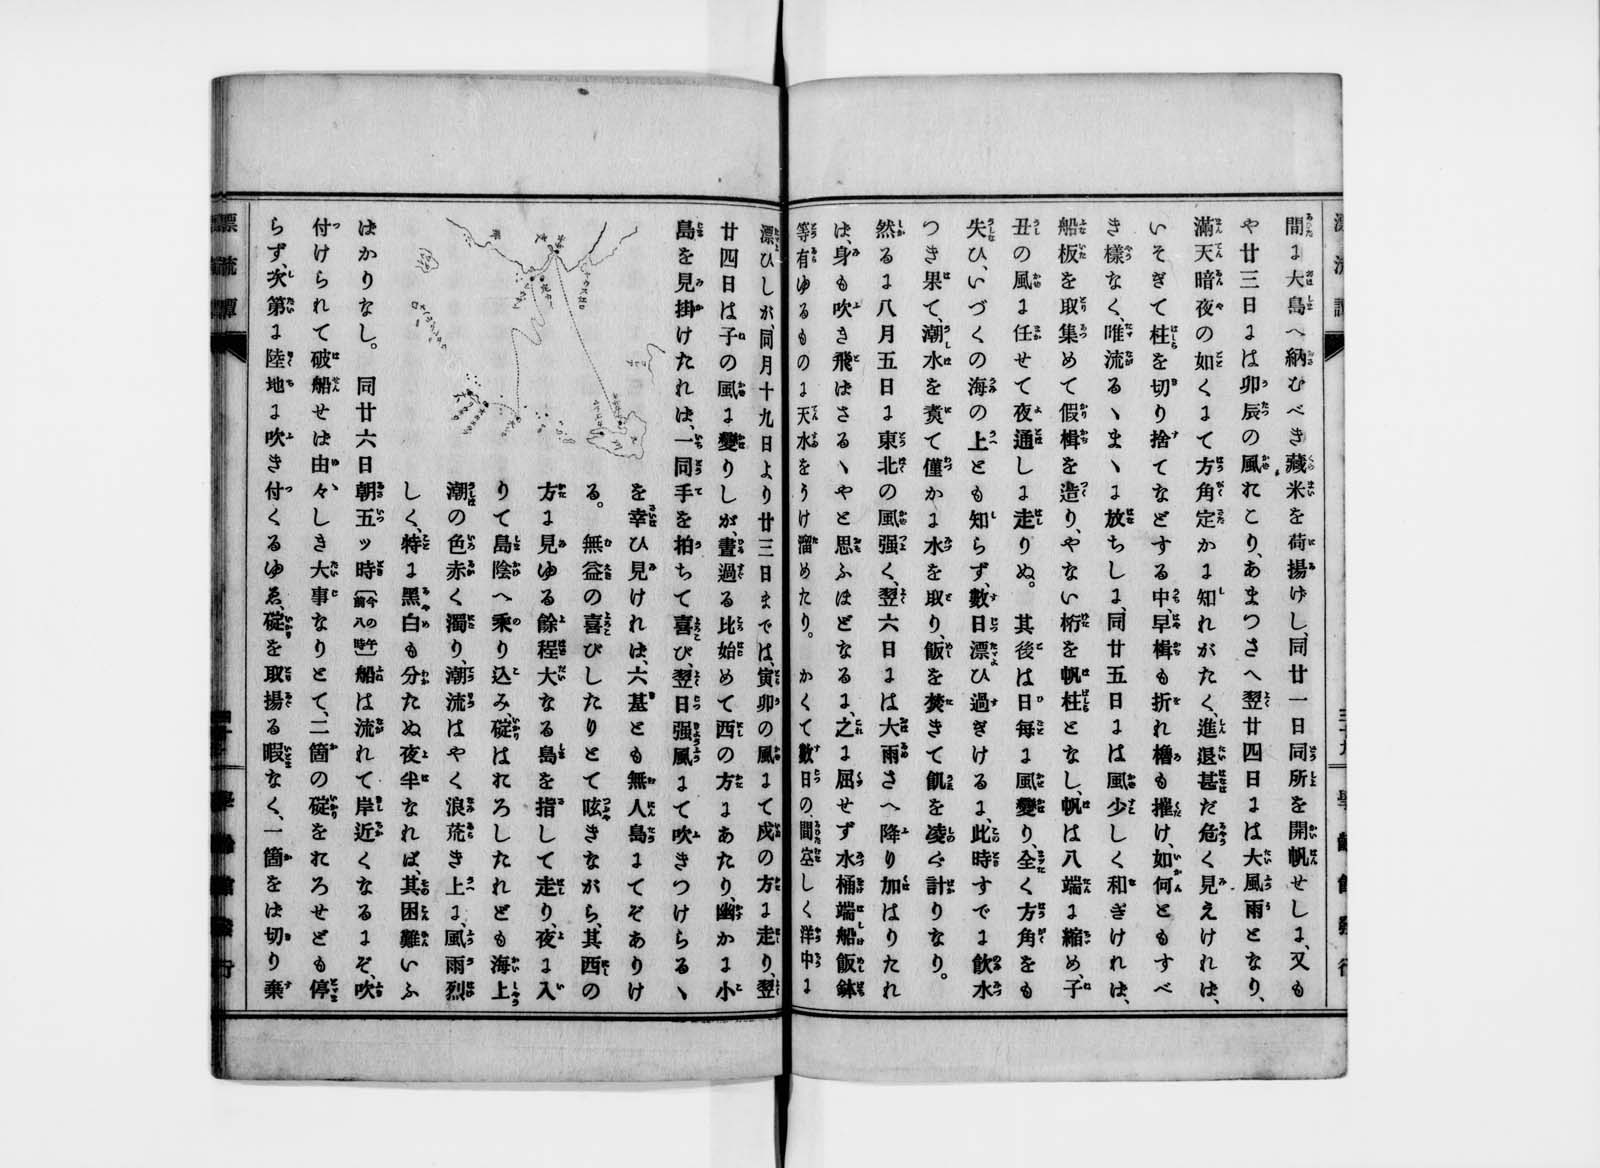 間ま大島へ納むべき藏米を荷揚げし、同廿一日同所を開帆せしま、又も
や廿三日まは卯辰の風れこり、あまつさへ翌廿四日まは大風雨となり、
滿天暗夜の如くまて方角定かま知れがたく、進退甚だ危く見えけれは、
いそぎて柱を切り捨てなどする中、早楫も折れ櫓も摧け、如何ともすべ
き樣なく、唯流るヽまヽま放ちしま、同廿五日まは風少しく和ぎけれは、
船板を取集めて假楫を造り、やない桁を帆柱となし、帆は八端ま縮め、子
丑の風ま任せて夜通しま走りぬ。其後は日每ま風變り、全く方角をも
失ひ、いづくの海の上とも知らず、數日漂ひ過ぎけるま、此時すでま飮水
つき果て、潮水を煑て僅かま水を取り、飯を焚きて飢を凌ぐ計りなり。
然るま八月五日ま東北の風强く、翌六日まは大雨さへ降り加はりたれ
は、身も吹き飛はさるヽやと思ふほどなるま、之ま屈せず水桶端船飯鉢
等有ゆるものま天水をうけ溜めたり。かくて數日の間空しく洋中ま
漂ひしが、同月十九日より廿三日までは、寅卯の風まて戌の方ま走り、翌
廿四日は子の風ま變りしが、晝過る比始めて西の方まあたり、幽かま小
島を見掛けたれは、一同手を拍ちて喜び、翌日强風まて吹きつけらるヽ
を幸ひ見けれは、六基とも無人島まてぞありけ
る。無益の喜びしたりとて呟きながら、其西の
方ま見ゆる餘程大なる島を指して走り、夜ま入
りて島陰へ乘り込み、碇はれろしたれども海上
潮の色赤く濁り、潮流はやく浪荒き上ま、風雨烈
しく、特ま黑白も分たぬ夜半なれば、其困難いふ
はかりなし。同廿六日朝五ッ時〔今の午前八時〕船は流れて岸近くなるまぞ、吹
付けられて破船せは由々しき大事なりとて、二箇の碇をれろせども停
らず、次第ま陸地ま吹き付くるゆゑ、碇を取揚る暇なく、一箇をは切り棄
漂流譚